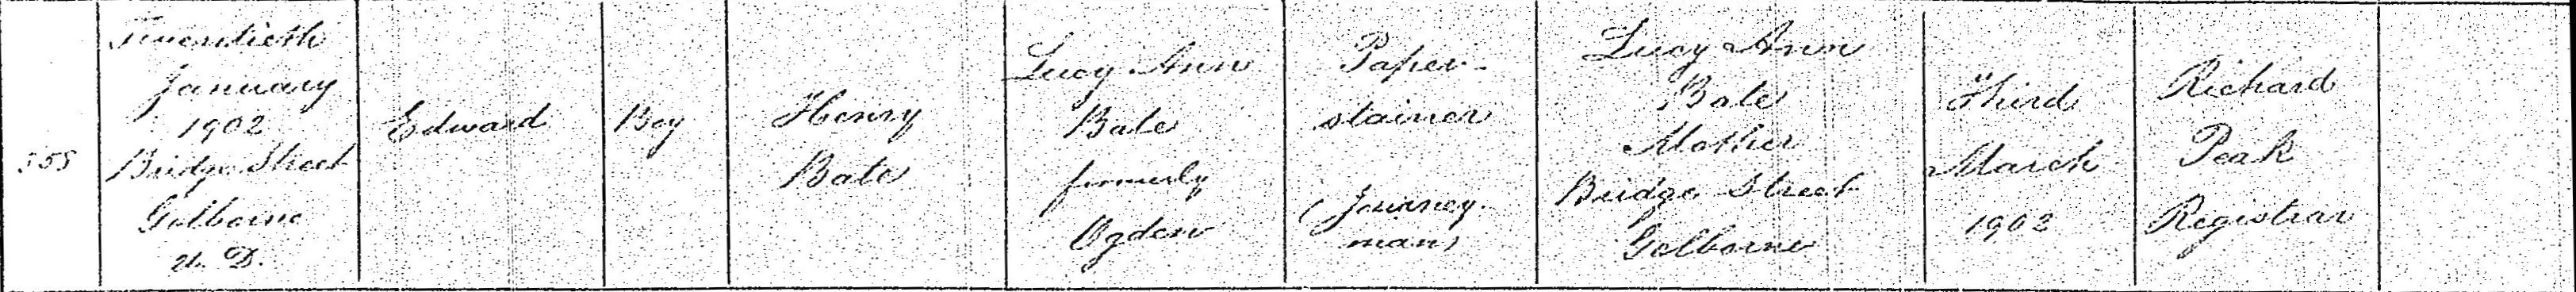 358
Twentieth
January
1902
Bridge Street
Golborne
U. D.
Edward
Boy
Henry
Bate
Lucy Ann
Bate
formerly
Ogden
Paper-
stainer
(Journey-
man)
Lucy Ann
Bate
Mother
Bridge Street
Golborne
Third
March
1902
Richard
Peak
Registrar